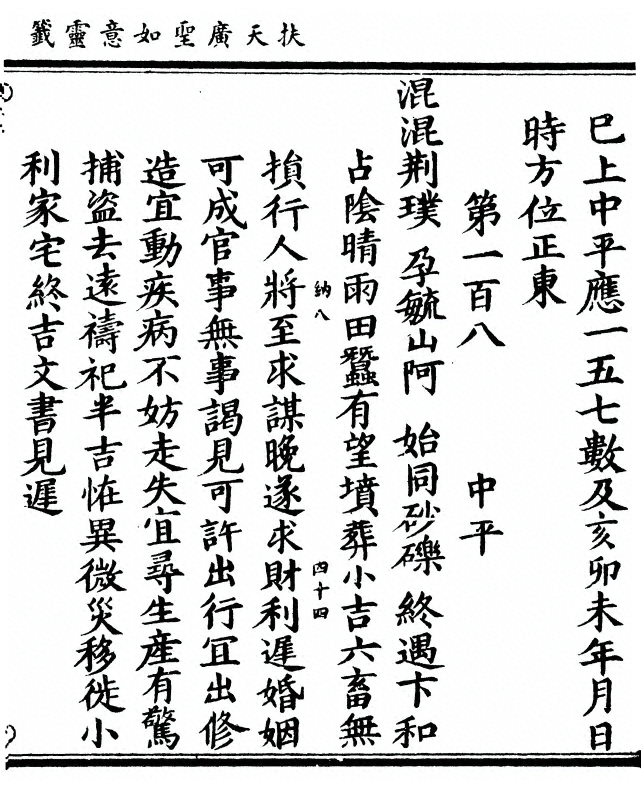 扶天廣聖如意靈籤
巳上中平應一五七數及亥卯未年月日
時方位正東
第一百八 中平
混混荆璞 孕毓山阿 始同砂礫 終遇卞和
占陰晴雨田蠶有望墳葬小吉六畜無
納八 四十四
損行人將至求謀晚遂求財利遲婚姻
可成官事無事謁見可許出行冝出修
造宜動疾病不妨走失宜尋生産有驚
捕盗去遠禱祀半吉恠異微災移徙小
利家宅終吉文書見遲